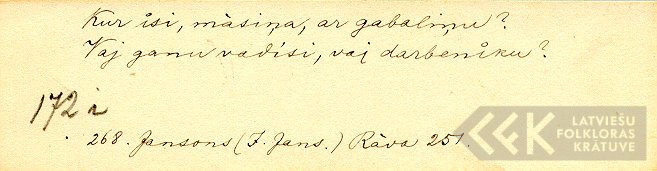 Kur īsi, māsiņa, ar gabaliņu?
Vaj ganu vadīsi, vaj darbenīku?
172 i
268. Jansons (J. Jans.) Rāva 251.
LATVIEŠU
FOLKLORAS
KRĀTUVE